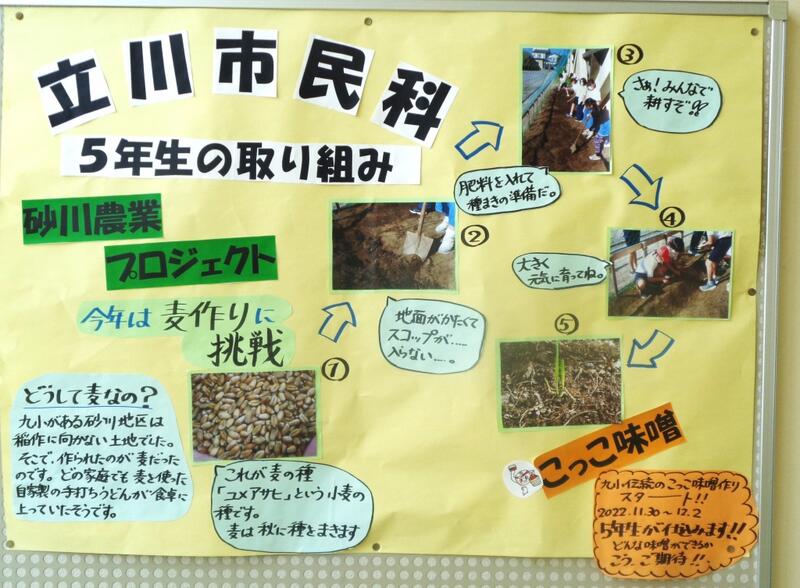 立川市民科
5年生の取り組み
砂川農業
プロジェクト
今年は 麦作りに
挑戦
どうして麦なの?
九小がある砂川地区は
稲作に向かない土地でした。
そこで、作られたのが麦だった
のです。どの家庭でも麦を使った
自家製の手打ちうどんが食卓に
上っていたそうです。
①
これが麦の種
「ユメアサヒ」という小麦の
種です。
麦は秋に種をまきます
②
地面がかたくて
スコップが.....
入らない....。
③
さぁ!みんなで
耕すぞ!!
肥料を入れて
種まきの準備だ。
④
大きく
元気に育ってね。
⑤
こっこ味噌
九小伝統のこっこ味噌作り
スタート!!
2022.11.30~12.2
5年生が仕込みます!!
どんな味噌ができるか
こうご期待!!